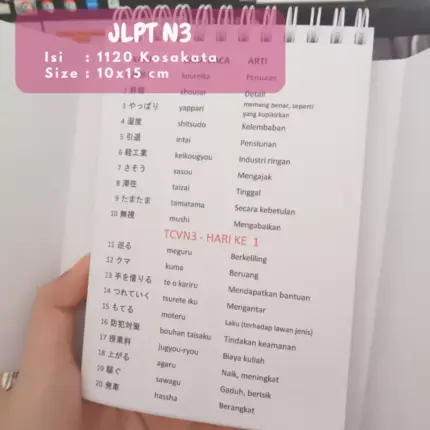 JLPT N3
Isi : 1120 Kosakata
Size : 10x15 cm
ARTI
Detail
3 やっぱり yappari memang benar, seperti yang kupikirkan
4 湿度 shitsudo Kelembaban
5 引退 intai Pensiunan
6 軽工業 keikougyou Industri ringan
7 さそう sasou Mengajak
8 滞在 taizai Tinggal
9 たまたま tamatama Secara kebetulan
10 無視 mushi Mengabaikan
TCVN3 - HARI KE 1
11 巡る meguru Berkeliling
12 クマ kuma Beruang
13 手を借りる te o kariru Mendapatkan bantuan
14 つれていく tsurete iku Mengantar
15 もてる moteru Laku (terhadap lawan jenis)
16 防犯対策 bouhan taisaku Tindakan keamanan
17 授業料 jugyou-ryou Biaya kuliah
18 上がる agaru Naik, meningkat
19 騒ぐ sawagu Gaduh, berisik
20 発車 hassha Berangkat